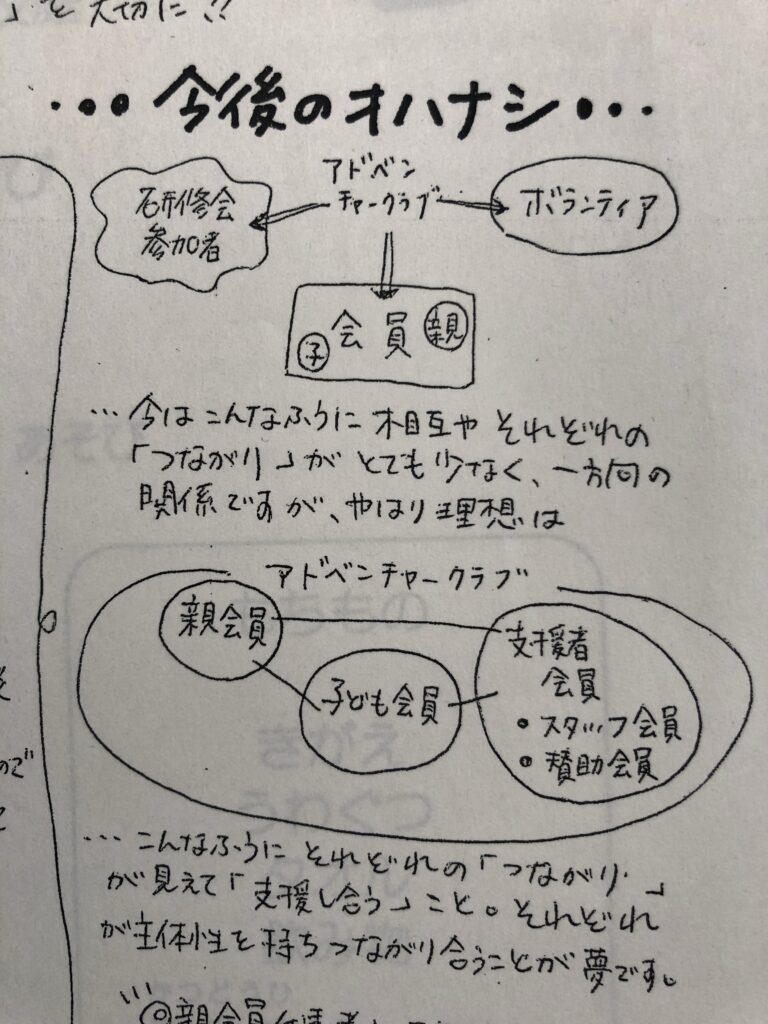 」を大切に!!
・・・今後のオハナシ・・・
アドベン
チャークラブ
研修会
参加者
ボランティア
子 会員 親
…今はこんなふうに相互やそれぞれの
「つながり」がとても少なく、一方向の
関係ですが、やはり理想は
アドベンチャークラブ
親会員
子ども会員
支援者
会員
・スタッフ会員
・賛助会員
…こんなふうにそれぞれの「つながり」
が見えて「支援し合う」こと。それぞれ
が主体性を持ちつながり合うことが夢です。
◎親会員
ので